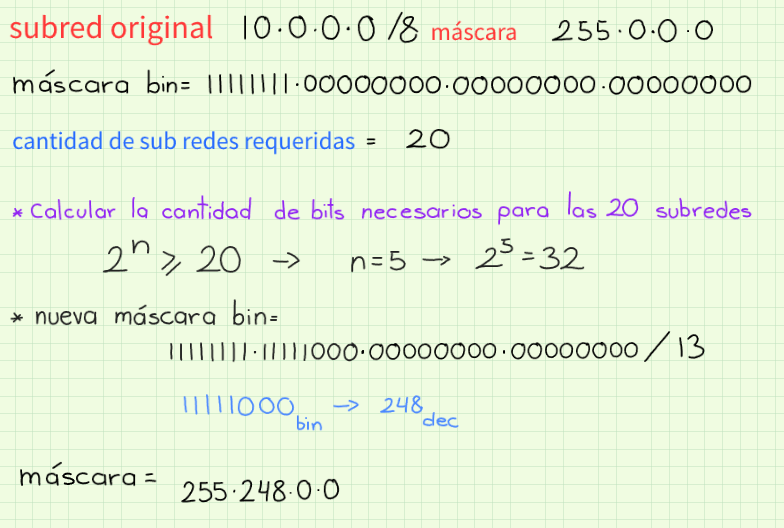 subred original 10.0.0.0 /8 máscara 255.0.0.0
máscara bin= 11111111.00000000.00000000.00000000
cantidad de sub redes requeridas = 20
* Calcular la cantidad de bits necesarios para las 20 subredes
2ⁿ ≥ 20 → n=5 → 2⁵=32
* nueva máscara bin=
11111111.11111000.00000000.00000000 / 13
11111000 bin → 248 dec
máscara = 255.248.0.0